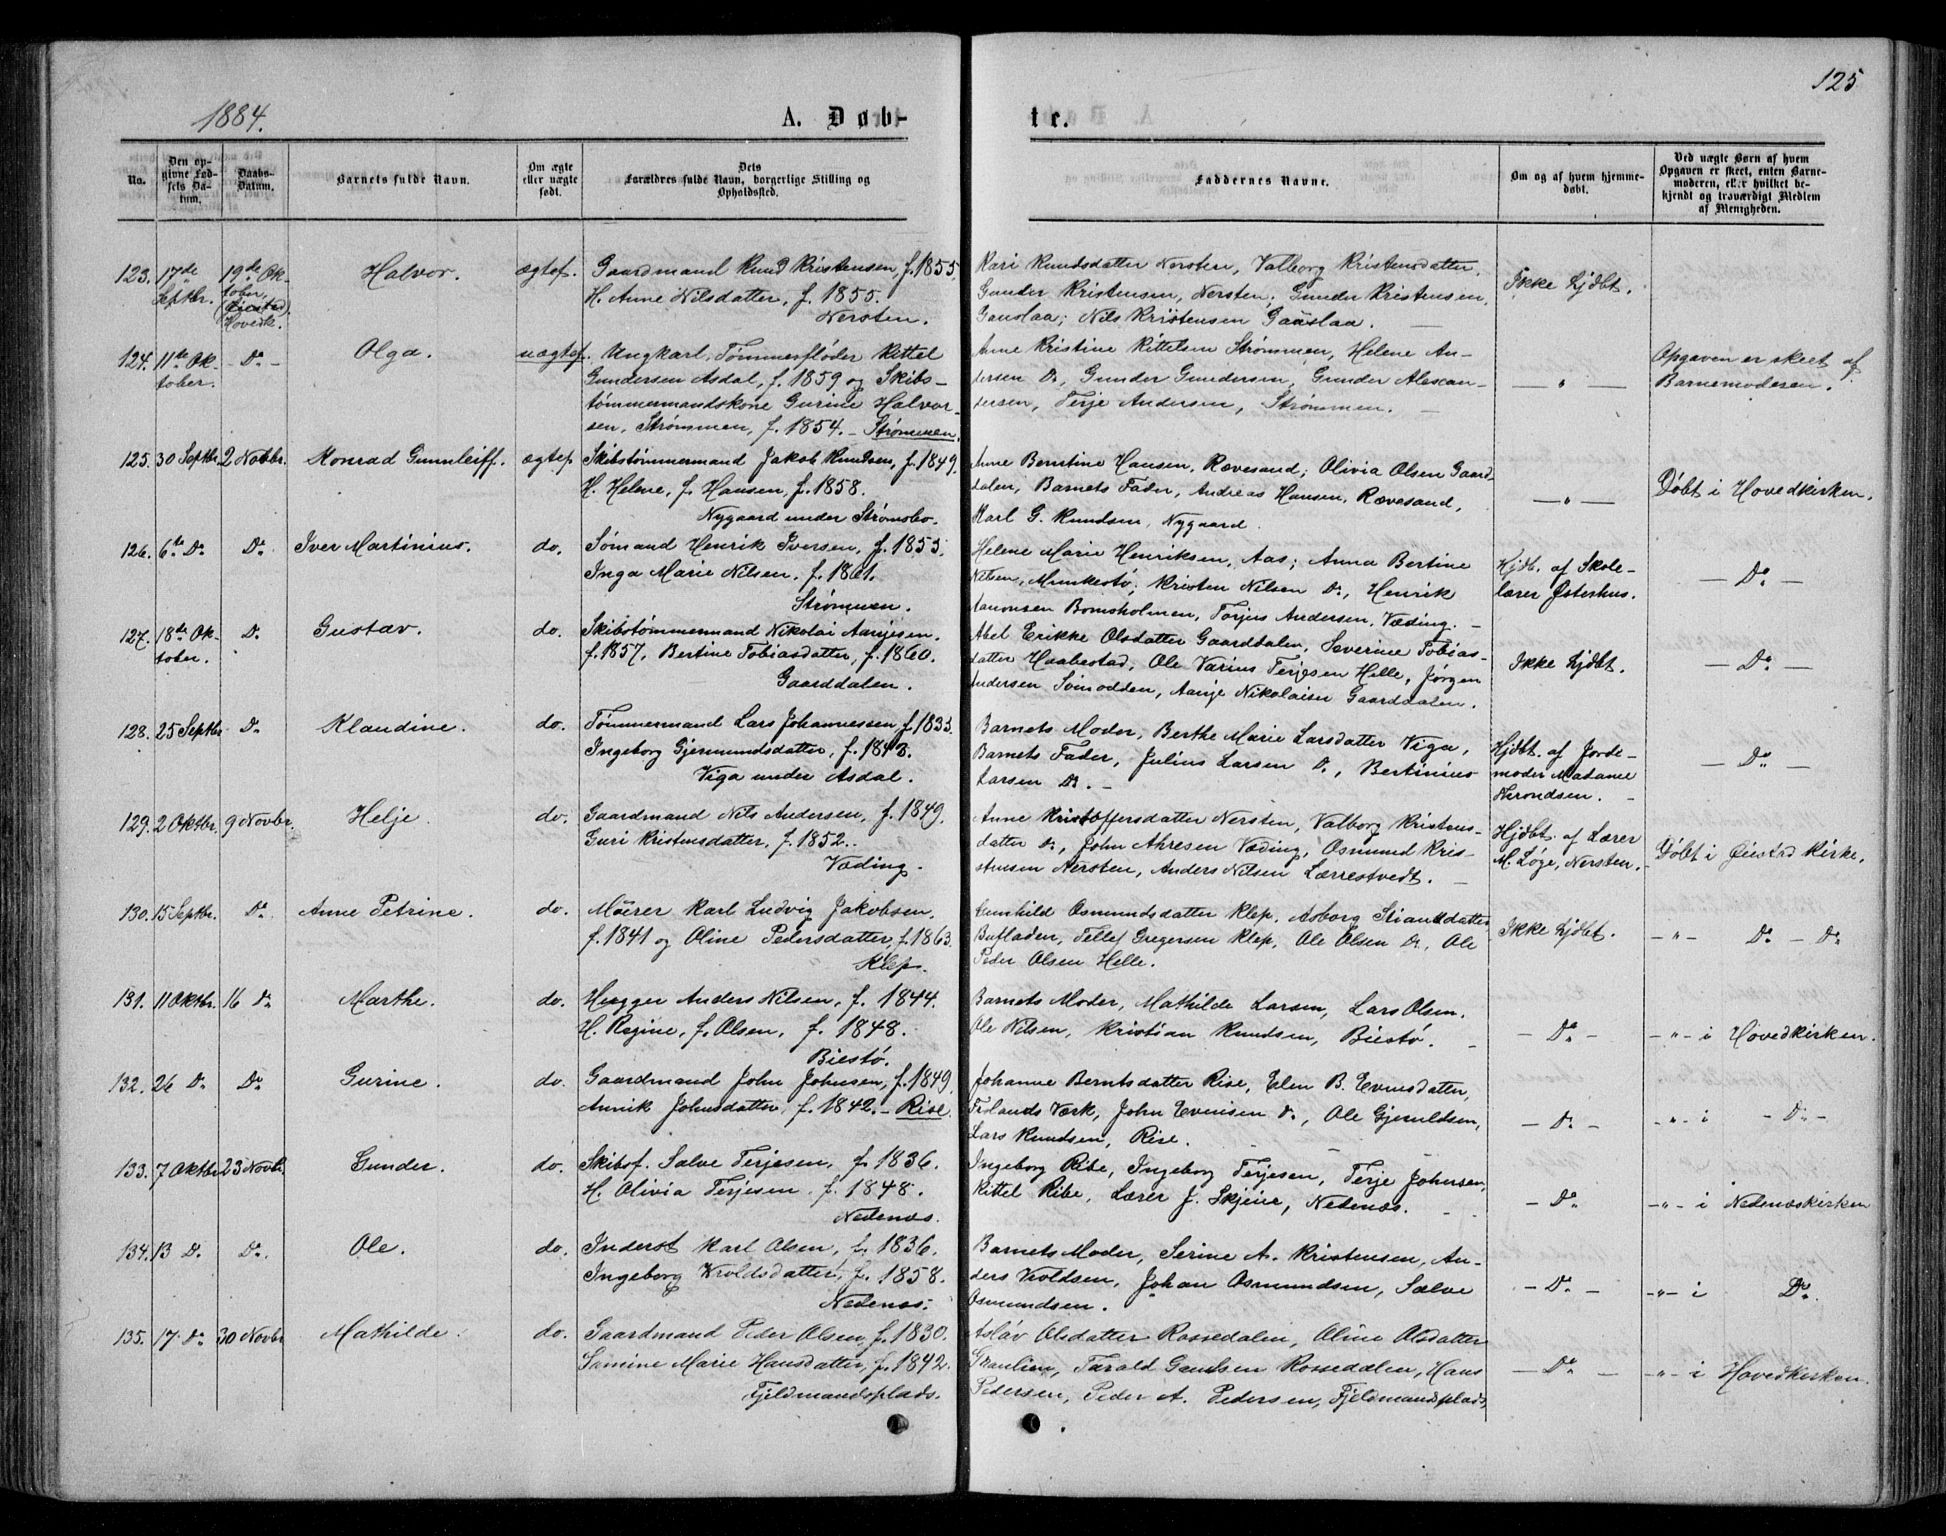 125
1884.
A. Døb-
te.
No.
Den op-
givne Fød-
sels Da-
tum.
Daabs-
Datum.
Barnets fulde Navn.
Om ægte
eller uægte
født.
Dets
Forældres fulde Navn, borgerlige Stilling og
Opholdssted.
Faddernes Navne.
Om og af hvem hjemme-
døbt.
Ved uægte Børn af hvem
Opgaven er skeet, enten Barne-
moderen, eller hvilket be-
kjendt og troværdigt Medlem
af Menigheden.
123. 17de Septbr. 19de Oktober, (Øiestad) Hovedk. Halvor. ægtef.
Gaardmand Knud Kristensen, f. 1855.
H. Anne Nilsdatter, f. 1855.
Nersten.
Kari Knudsdatter Nersten, Valborg Kristensdatter,
Gunder Kristensen, Nersten; Gunder Kristensen
Gauslaa; Nils Kristensen Gauslaa. —
Ikke hjdbt.
124. 11te Oktober. Do - Olga. uægtef.
Ungkarl, Tømmerfløder Kittel
Gundersen Asdal, f. 1859 og Skibs-
tømmermandskone Gurine Halvor-
sen, Strømmen, f. 1854. - Strømmen.
Anne Kristine Kittelsen Strømmen, Helene An-
dersen Do, Gunder Gundersen, Gunder Alexan-
dersen, Terje Andersen, Strømmen. —
— " —
Opgaven er skeet af
Barnemoderen.
125. 30 Septbr. 2 Novbr. Konrad Gunnleiff. ægtef
Skibstømmermand Jakob Knudsen, f. 1849.
H. Helene, f. Hansen, f. 1858.
Nygaard under Strømsbo.
Anne Berntine Hansen, Rævesand; Olivia Olsen Gaard-
dalen, Barnets Fader, Andreas Hansen, Rævesand,
Karl G. Knudsen, Nygaard.
— " —
Døbt i Hovedkirken.
126. 6te Do Do Iver Martinius. do.
Sømand Henrik Iversen, f. 1855.
Inga Marie Nilsen, f. 1861.
Strømmen.
Helene Marie Henriksen, Aas; Anna Bertine
Nilsen, Munkestø; Kristen Nilsen Do, Henrik
Aanonsen Bomsholmen, Torjus Andersen, Væding. —
Hjdb. af Skole-
lærer Østerhus.
— Do —
127. 18de Oktober. Do Gustav. do.
Skibstømmermand Nikolai Aanjesen,
f. 1857, Bertine Tobiasdatter, f. 1860.
Gaarddalen.
Abel Erikke Olsdatter Gaarddalen, Severine Tobias-
datter Haabestad, Ole Varius Terjesen Helle, Jørgen
Andersen Sømodden, Aanje Nikolaisen Gaarddalen.
Ikke hjdbt.
— Do —
128. 25 Septbr Do Klaudine. do.
Tømmermand Lars Johannessen f. 1835.
Ingeborg Gjermundsdatter, f. 1843.
Viga under Asdal.
Barnets Moder, Berthe Marie Larsdatter Viga,
Barnets Fader, Julius Larsen Do, Bertinius
Larsen Do. —
Hjdbt. af Jorde-
moder Madame
Throndsen. —
— Do —
129. 2 Oktbr. 9 Novbr. Helje. do.
Gaardmand Nils Andersen, f. 1849.
Guri Kristensdatter, f. 1852.
Væding.
Anne Kristoffersdatter Nersten, Valborg Kristens-
datter Do, John Ahresen Væding, Osmund Kris-
stensen Nersten, Anders Nilsen Lærrestvedt. —
Hjdbt. af Lærer
M. Løge, Nersten.
Døbt i Øiestad Kirke.
130. 15 Septbr. Do Anne Petrine. do.
Murer Karl Ludvig Jakobsen,
f. 1841 og Oline Pedersdatter, f. 1863.
Klep.
Gunhild Osmundsdatter Klep, Asborg Stiansdatter
Bufladen, Tellef Gregersen Klep, Ole Olsen Do, Ole
Peder Olsen Helle.
Ikke hjdbt.
-"- Do - Do
131. 11 Oktbr. 16 Do Marthe. do.
Hugger Anders Nilsen, f. 1844.
H. Regine, f. Olsen, f. 1848.
Biestø.
Barnets Moder, Mathilde Larsen, Lars Olsen,
Ole Nilsen, Kristian Knudsen, Biestø. —
— Do —
-"- i Hovedkirken.
132. 26 Do Do Gurine. do.
Gaardmand John Johnsen, f. 1849.
Annik Johnsdatter, f. 1842. - Rise.
Johanne Berntsdatter Rise, Elen B. Evensdatter,
Frolands Værk, John Evensen Do, Ole Gjeruldsen,
Lars Knudsen, Rise.
— Do —
-"- i - Do -
133. 7 Oktbr 23 Novbr. Gunder. do.
Skibsf. Salve Terjesen, f. 1836.
H. Olivia Terjesen, f. 1848.
Nedenæs.
Ingeborg Ribe, Ingeborg Terjesen, Terje Johnsen,
Kittel Ribe, Lærer J. Skjeie, Nedenæs.
— Do
-"- i Nedenæskirken
134. 13 Do Do. Ole. do.
Inderst Karl Olsen, f. 1836.
Ingeborg Kroldsdatter, f. 1858.
Nedenæs.
Barnets Moder, Serine A. Kristensen, An-
ders Kroldsen, Johan Osmundsen, Salve
Osmundsen.
— Do —
-"- i Do.
135. 17. Do 30 Novbr Mathilde. do.
Gaardmand Peder Olsen, f. 1830.
Samine Marie Hansdatter, f. 1842.
Fjeldmandsplads.
Aslav Olsdatter Rossedalen, Oline Olsdatter
Granlien, Tarald Rossedalen, Hans
Pedersen, Peder A. Pedersen, Fjeldmandsplads,
— Do —
-"- i Hovedkirken.